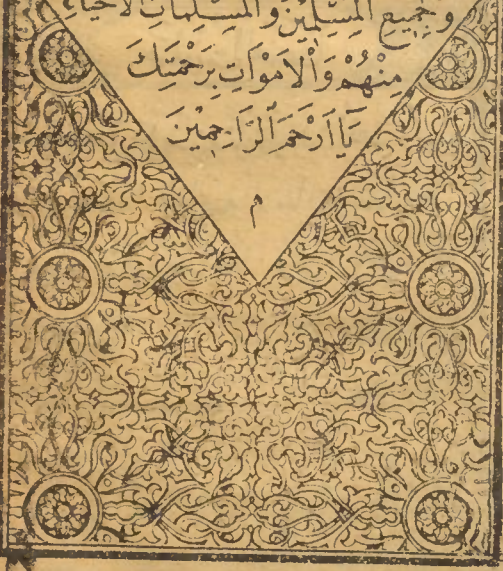 وَجَمِيعِ الْمُسْلِمِيْنَ وَالْمُسْلِمَاتِ الْاَحْيَاءِ
مِنْهُمْ وَالْاَمْوَاتِ بِرَحْمَتِكَ
يَا اَرْحَمَ الرَّاحِمِيْنَ
م